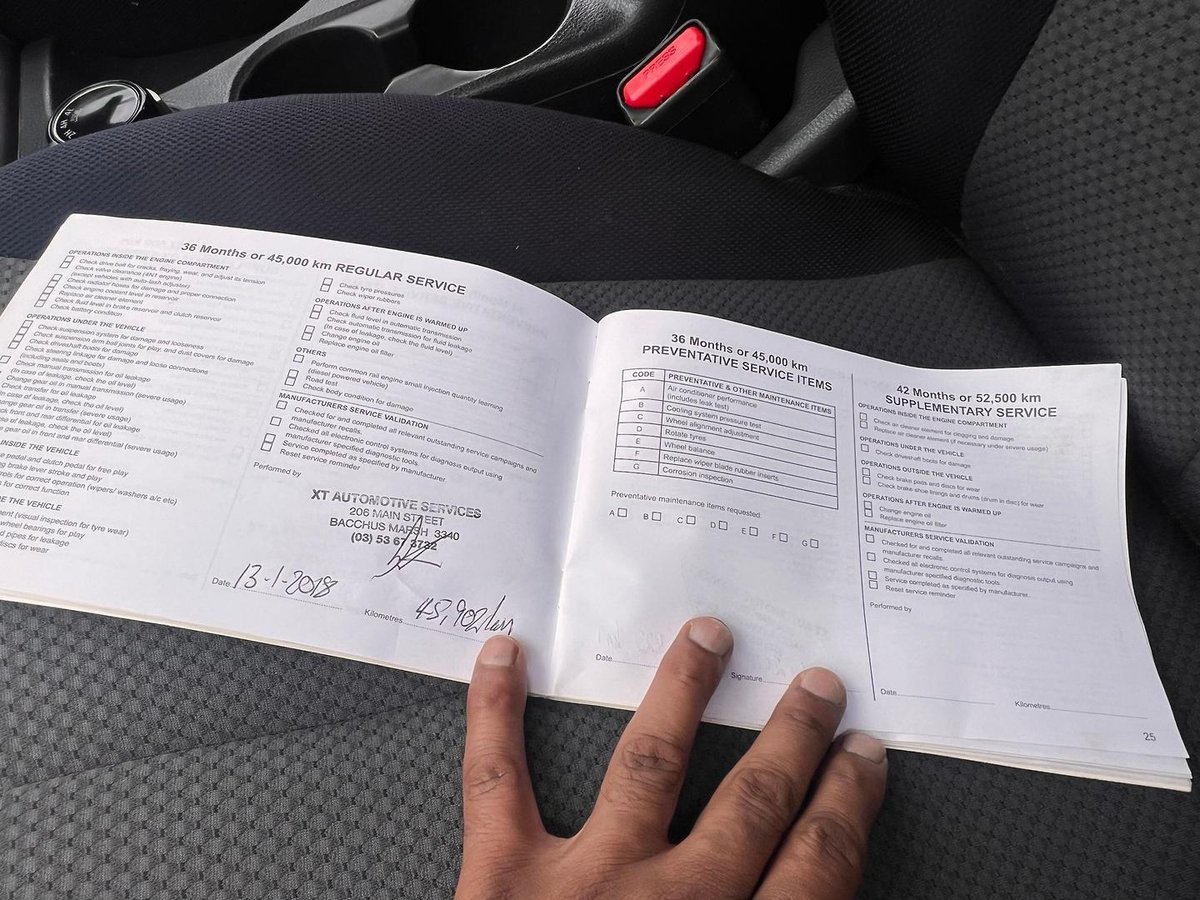 PRESS
2H 4H
36 Months or 45,000 km REGULAR SERVICE
OPERATIONS INSIDE THE ENGINE COMPARTMENT
Check drive belt for cracks, fraying, wear, and adjust its tension
Check valve clearance (4N1 engine)
(except vehicles with auto-lash adjuster)
Check radiator hoses for damage and proper connection
Check engine coolant level in reservoir
Replace air cleaner element
Check fluid level in brake reservoir and clutch reservoir
Check battery condition
OPERATIONS UNDER THE VEHICLE
Check suspension system for damage and looseness
Check suspension arm ball joints for play, and dust covers for damage
Check driveshaft boots for damage
Check steering linkage for damage and loose connections
(including seals and boots)
Check manual transmission for oil leakage
(In case of leakage, check the oil level)
Change gear oil in manual transmission (severe usage)
Check transfer for oil leakage
case of leakage, check the oil level)
gear oil in transfer (severe usage)
front and rear differential for oil leakage
of leakage, check the oil level)
gear oil in front and rear differential (severe usage)
INSIDE THE VEHICLE
pedal and clutch pedal for free play
brake lever stroke and play
for correct operation (wipers/ washers a/c etc)
for correct function
THE VEHICLE
(visual inspection for tyre wear)
wheel bearings for play
pipes for leakage
discs for wear
Check tyre pressures
Check wiper rubbers
OPERATIONS AFTER ENGINE IS WARMED UP
Check fluid level in automatic transmission
Check automatic transmission for fluid leakage
(In case of leakage, check the fluid level)
Change engine oil
Replace engine oil filter
OTHERS
Perform common rail engine small injection quantity learning
(diesel powered vehicle)
Road test
Check body condition for damage
MANUFACTURERS SERVICE VALIDATION
Checked for and completed all relevant outstanding service campaigns and
manufacturer recalls.
Checked all electronic control systems for diagnosis output using
manufacturer specified diagnostic tools.
Service completed as specified by manufacturer.
Reset service reminder
Performed by
XT AUTOMOTIVE SERVICES
206 MAIN STREET
BACCHUS MARSH 3340
(03) 53 67 3732
Date 13-1-2018
Kilometres 45,902 km
36 Months or 45,000 km
PREVENTATIVE SERVICE ITEMS
CODE PREVENTATIVE & OTHER MAINTENANCE ITEMS
A Air conditioner performance
(includes leak test)
B Cooling system pressure test
C Wheel alignment adjustment
D Rotate tyres
E Wheel balance
F Replace wiper blade rubber inserts
G Corrosion inspection
Preventative maintenance items requested:
A B C D E F G
Date
Signature
42 Months or 52,500 km
SUPPLEMENTARY SERVICE
OPERATIONS INSIDE THE ENGINE COMPARTMENT
Check air cleaner element for clogging and damage
Replace air cleaner element (if necessary under severe usage)
OPERATIONS UNDER THE VEHICLE
Check driveshaft boots for damage
OPERATIONS OUTSIDE THE VEHICLE
Check brake pads and discs for wear
Check brake shoe linings and drums (drum in disc) for wear
OPERATIONS AFTER ENGINE IS WARMED UP
Change engine oil
Replace engine oil filter
MANUFACTURERS SERVICE VALIDATION
Checked for and completed all relevant outstanding service campaigns and
manufacturer recalls.
Checked all electronic control systems for diagnosis output using
manufacturer specified diagnostic tools.
Service completed as specified by manufacturer.
Reset service reminder
Performed by
Date
Kilometres
25